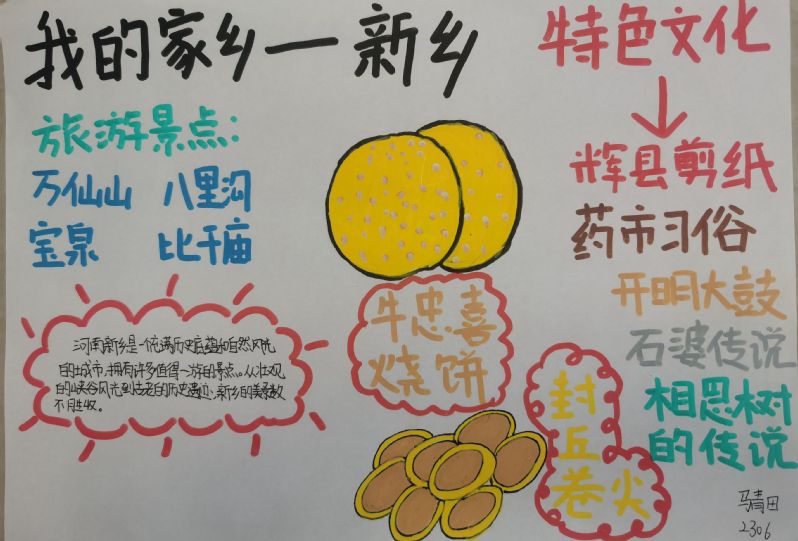 我的家乡一新乡
旅游景点:
万仙山 八里沟
宝泉 比干庙
河南新乡是一个充满历史底蕴和自然风光
的城市，拥有许多值得一游的景点。从壮观
的峡谷风光到古老的历史遗迹、新乡的美景数
不胜收。
牛忠喜
烧饼
封
丘
卷尖
特色文化
辉县剪纸
药市习俗
开明大鼓
石婆传说
相思树
的传说
马青田
2306